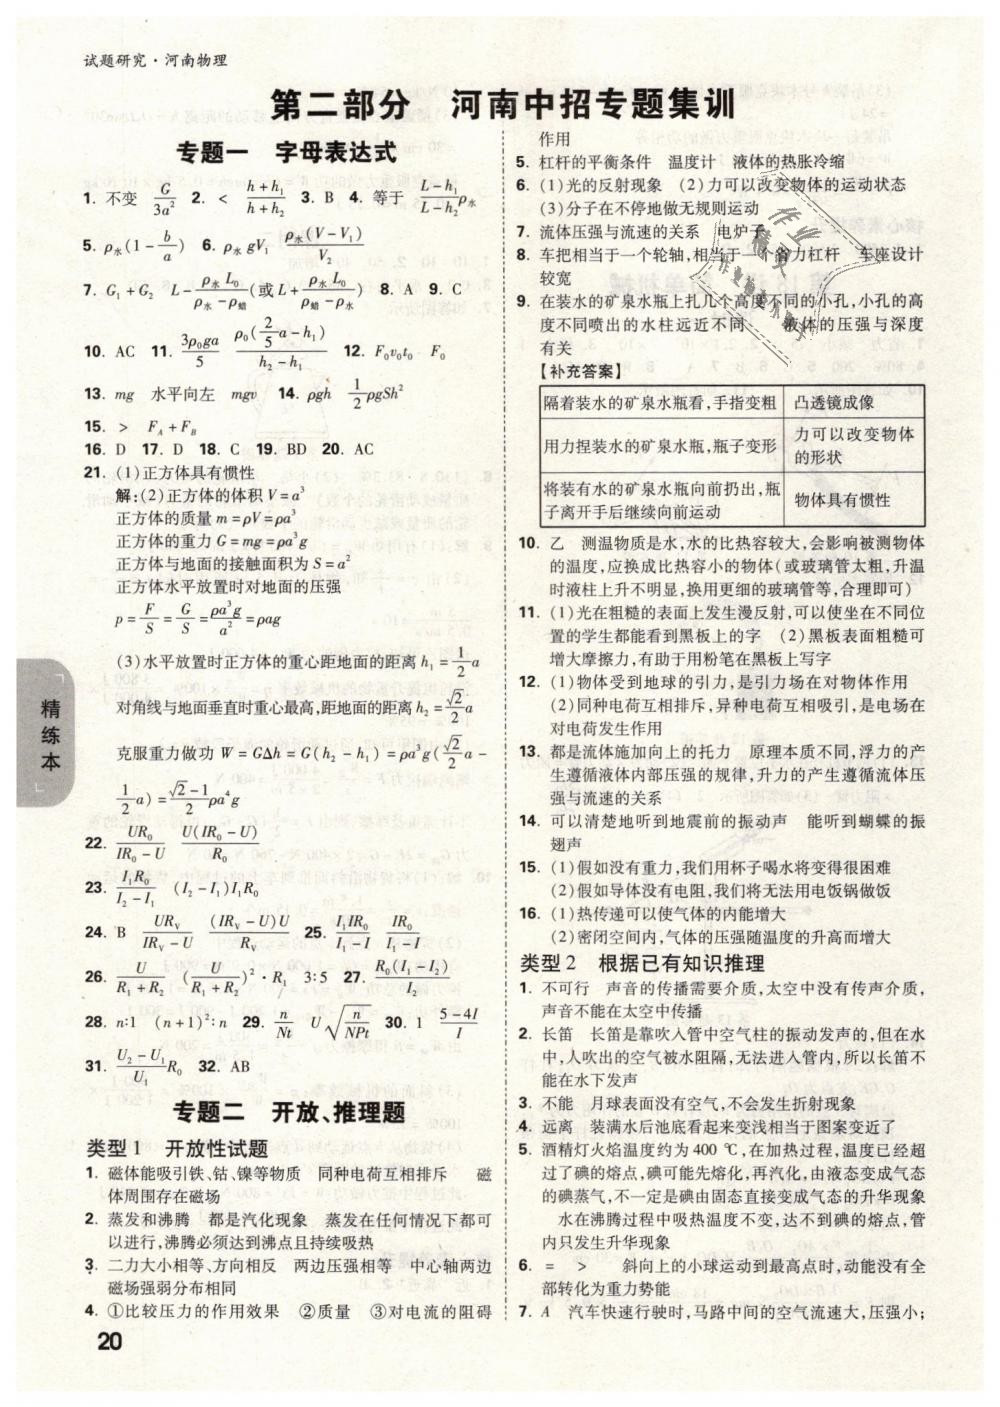 试题研究·河南物理
第二部分　河南中招专题集训
专题一　字母表达式
1. 不变　G/3a²　2. <　(h+h₁)/(h+h₂)　3. B　4. 等于　(L-h₁)/(L-h₂)ρ水
5. ρ水(1-b/a)　6. ρ水gV₁　ρ水(V-V₁)/V₂
7. G₁+G₂　L-ρ水L₀/(ρ水-ρ蜡)(或L+ρ水L₀/(ρ蜡-ρ水))　8. A　9. C
10. AC　11. 3ρ₀ga/5　ρ₀(2/5a-h₁)/(h₂-h₁)　12. F₀v₀t₀　F₀
13. mg　水平向左　mgv　14. ρgh　1/2ρgSh²
15. >　F_A+F_B
16. D　17. D　18. C　19. BD　20. AC
21. (1)正方体具有惯性
解:(2)正方体的体积V=a³
正方体的质量m=ρV=ρa³
正方体的重力G=mg=ρa³g
正方体与地面的接触面积为S=a²
正方体水平放置时对地面的压强
p=F/S=G/S=ρa³g/a²=ρag
(3)水平放置时正方体的重心距地面的距离h₁=1/2a
对角线与地面垂直时重心最高,距地面的距离h₂=√2/2a
克服重力做功W=GΔh=G(h₂-h₁)=ρa³g(√2/2a-
1/2a)=(√2-1)/2ρa⁴g
22. UR₀/(IR₀-U)　U(IR₀-U)/R₀
23. I₁R₀/(I₂-I₁)　(I₂-I₁)I₁R₀
24. B　UR_V/(IR_V-U)　(IR_V-U)U/R_V　25. I₁IR₀/(I₁-I)　IR₀/(I₁-I)
26. U/(R₁+R₂)　(U/(R₁+R₂))²·R₁　3:5　27. R₀(I₁-I₂)/I₂
28. n:1　(n+1)²:n　29. n/Nt　U√(n/NPt)　30. 1　(5-4I)/I
31. (U₂-U₁)/U₁R₀　32. AB
专题二　开放、推理题
类型1　开放性试题
1. 磁体能吸引铁、钴、镍等物质　同种电荷互相排斥　磁
体周围存在磁场
2. 蒸发和沸腾　都是汽化现象　蒸发在任何情况下都可
以进行,沸腾必须达到沸点且持续吸热
3. 二力大小相等、方向相反　两边压强相等　中心轴两边
磁场强弱分布相同
4. ①比较压力的作用效果　②质量　③对电流的阻碍
作用
5. 杠杆的平衡条件　温度计　液体的热胀冷缩
6. (1)光的反射现象　(2)力可以改变物体的运动状态
(3)分子在不停地做无规则运动
7. 流体压强与流速的关系　电炉子
8. 车把相当于一个轮轴,相当于一个省力杠杆　车座设计
较宽
9. 在装水的矿泉水瓶上扎几个高度不同的小孔,小孔的高
度不同喷出的水柱远近不同　液体的压强与深度
有关
【补充答案】
隔着装水的矿泉水瓶看,手指变粗　凸透镜成像
用力捏装水的矿泉水瓶,瓶子变形　力可以改变物体
的形状
将装有水的矿泉水瓶向前扔出,瓶
子离开手后继续向前运动　物体具有惯性
10. 乙　测温物质是水,水的比热容较大,会影响被测物体
的温度,应换成比热容小的物体(或玻璃管太粗,升温
时液柱上升不明显,换用更细的玻璃管等,合理即可)
11. (1)光在粗糙的表面上发生漫反射,可以使坐在不同位
置的学生都能看到黑板上的字　(2)黑板表面粗糙可
增大摩擦力,有助于用粉笔在黑板上写字
12. (1)物体受到地球的引力,是引力场在对物体作用
(2)同种电荷互相排斥,异种电荷互相吸引,是电场在
对电荷发生作用
13. 都是流体施加向上的托力　原理本质不同,浮力的产
生遵循液体内部压强的规律,升力的产生遵循流体压
强与流速的关系
14. 可以清楚地听到地震前的振动声　能听到蝴蝶的振
翅声
15. (1)假如没有重力,我们用杯子喝水将变得很困难
(2)假如导体没有电阻,我们将无法用电饭锅做饭
16. (1)热传递可以使气体的内能增大
(2)密闭空间内,气体的压强随温度的升高而增大
类型2　根据已有知识推理
1. 不可行　声音的传播需要介质,太空中没有传声介质,
声音不能在太空中传播
2. 长笛　长笛是靠吹入管中空气柱的振动发声的,但在水
中,人吹出的空气被水阻隔,无法进入管内,所以长笛不
能在水下发声
3. 不能　月球表面没有空气,不会发生折射现象
4. 远离　装满水后池底看起来变浅相当于图案变近了
5. 酒精灯火焰温度约为400 ℃,在加热过程,温度已经超
过了碘的熔点,碘可能先熔化,再汽化,由液态变成气态
的碘蒸气,不一定是碘由固态直接变成气态的升华现象
水在沸腾过程中吸热温度不变,达不到碘的熔点,管
内只发生升华现象
6. =　>　斜向上的小球运动到最高点时,动能没有全
部转化为重力势能
7. A　汽车快速行驶时,马路中间的空气流速大,压强小;
精练本
20